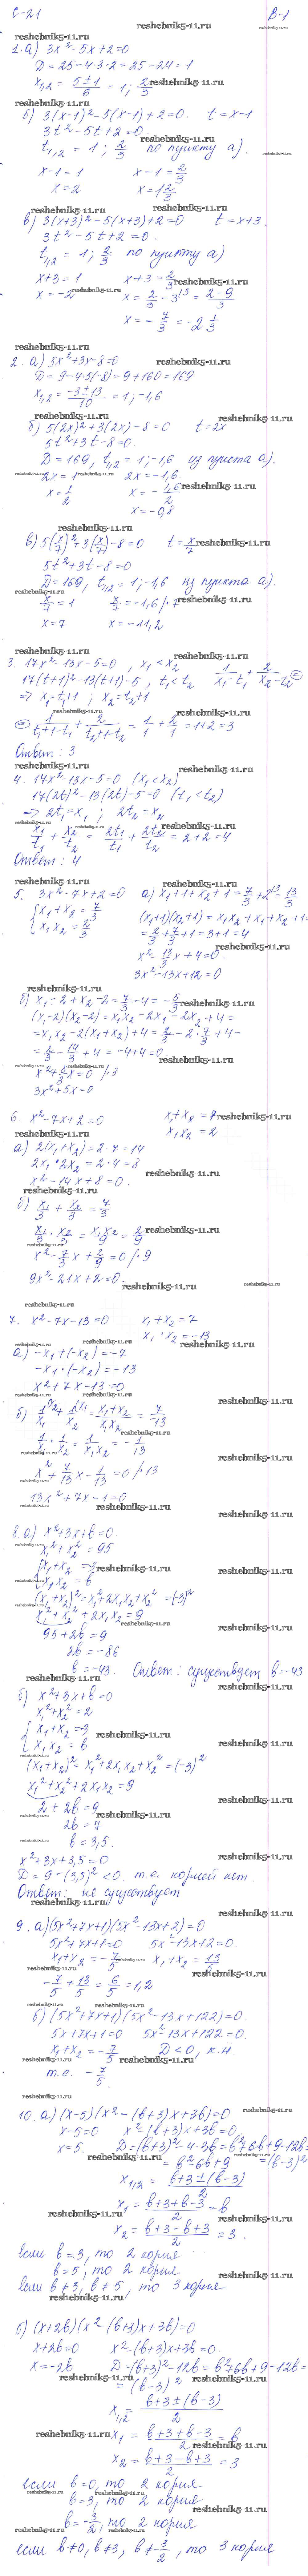 С-21
В-1
reshebnik5-11.ru
1. а) 3x² - 5x + 2 = 0
D = 25 - 4·3·2 = 25 - 24 = 1
x₁,₂ = (5 ± 1)/6 = 1; 2/3
б) 3(x-1)² - 5(x-1) + 2 = 0. t = x-1
3t² - 5t + 2 = 0.
t₁,₂ = 1; 2/3 по пункту а).
x-1 = 1 x-1 = 2/3
x = 2 x = 1 2/3
reshebnik5-11.ru
в) 3(x+3)² - 5(x+3) + 2 = 0 t = x+3.
3t² - 5t + 2 = 0.
t₁,₂ = 1; 2/3 по пункту а)
x+3 = 1 x+3 = 2/3
x = -2 x = 2/3 - 3 = (2-9)/3
x = -7/3 = -2 1/3
reshebnik5-11.ru
2. а) 5x² + 3x - 8 = 0
D = 9 - 4·5(-8) = 9 + 160 = 169
x₁,₂ = (-3 ± 13)/10 = 1; -1,6
б) 5(2x)² + 3(2x) - 8 = 0 t = 2x
5t² + 3t - 8 = 0.
D = 169, t₁,₂ = 1; -1,6 из пункта а).
2x = 1 2x = -1,6.
x = 1/2 x = -1,6/2
x = -0,8
reshebnik5-11.ru
в) 5(x/7)² + 3(x/7) - 8 = 0 t = x/7
5t² + 3t - 8 = 0
D = 169, t₁,₂ = 1; -1,6 из пункта а).
x/7 = 1 x/7 = -1,6 /·7
x = 7 x = -11,2
reshebnik5-11.ru
3. 17x² - 13x - 5 = 0, x₁ < x₂
17(t+1)² - 13(t+1) - 5, t₁ < t₂ 1/(x₁-t₁) + 2/(x₂-t₂) =
⇒ x₁ = t₁+1; x₂ = t₂+1
= 1/(t₁+1-t₁) + 2/(t₂+1-t₂) = 1/1 + 2/1 = 1+2 = 3
Ответ: 3
reshebnik5-11.ru
4. 17x² - 13x - 5 = 0 (x₁ < x₂)
17(2t)² - 13(2t) - 5 = 0 (t₁ < t₂)
⇒ 2t₁ = x₁; 2t₂ = x₂
x₁/t₁ + x₂/t₂ = 2t₁/t₁ + 2t₂/t₂ = 2+2 = 4
Ответ: 4
reshebnik5-11.ru
5. 3x² - 7x + 2 = 0 а) x₁+1+x₂+1 = 7/3 + 2 = 13/3
{x₁+x₂ = 7/3 (x₁+1)(x₂+1) = x₁x₂ + x₁ + x₂ + 1 =
x₁x₂ = 2/3 = 2/3 + 7/3 + 1 = 3+1 = 4
x² - 13/3 x + 4 = 0.
3x² - 13x + 12 = 0
б) x₁ - 2 + x₂ - 2 = 7/3 - 4 = -5/3
(x₁-2)(x₂-2) = x₁x₂ - 2x₁ - 2x₂ + 4 =
= x₁x₂ - 2(x₁+x₂) + 4 = 2/3 - 2·7/3 + 4 =
= 2/3 - 14/3 + 4 = -4+4 = 0
x² + 5/3 x = 0 /·3
3x² + 5x = 0
reshebnik5-11.ru
6. x² - 7x + 2 = 0 x₁+x₂ = 7
x₁x₂ = 2
а) 2(x₁+x₂) = 2·7 = 14
2x₁·2x₂ = 2·4 = 8
x² - 14x + 8 = 0.
б) x₁/3 + x₂/3 = 7/3
x₁/3 · x₂/3 = x₁x₂/9 = 2/9
x² - 7/3 x + 2/9 = 0 /·9
9x² - 21x + 2 = 0.
reshebnik5-11.ru
7. x² - 7x - 13 = 0 x₁+x₂ = 7
x₁·x₂ = -13
а) -x₁+(-x₂) = -7
-x₁·(-x₂) = -13
x² + 7x - 13 = 0
б) 1/x₁ + 1/x₂ = (x₁+x₂)/(x₁x₂) = -7/13
1/x₁ · 1/x₂ = 1/(x₁x₂) = -1/13
x² + 7/13 x - 1/13 = 0 /·13
13x² + 7x - 1 = 0
reshebnik5-11.ru
8. а) x² + 3x + b = 0.
x₁² + x₂² = 95
{x₁+x₂ = -3
x₁x₂ = b
(x₁+x₂)² = x₁² + 2x₁x₂ + x₂² = (-3)²
x₁² + x₂² + 2x₁x₂ = 9
95 + 2b = 9
2b = -86
b = -43. Ответ: существует b = -43
reshebnik5-11.ru
б) x² + 3x + b = 0
x₁² + x₂² = 2
{x₁+x₂ = -3
x₁x₂ = b
(x₁+x₂)² = x₁² + 2x₁x₂ + x₂² = (-3)²
x₁² + x₂² + 2x₁x₂ = 9
2 + 2b = 9
2b = 7
b = 3,5.
x² + 3x + 3,5 = 0
D = 9 - (3,5)² < 0. т.е. корней нет.
Ответ: не существует
reshebnik5-11.ru
9. а) (5x² + 7x + 1)(5x² - 13x + 2) = 0
5x² + 7x + 1 = 0 5x² - 13x + 2 = 0.
x₁+x₂ = -7/5 x₁+x₂ = 13/5
-7/5 + 13/5 = 6/5 = 1,2
б) (5x² + 7x + 1)(5x² - 13x + 122) = 0.
5x + 7x + 1 = 0 5x² - 13x + 122 = 0.
x₁+x₂ = -7/5 D < 0, к.н.
т.е. -7/5.
reshebnik5-11.ru
10. а) (x-5)(x² - (b+3)x + 3b) = 0
x-5 = 0 x² (b+3)x + 3b = 0
x = 5. D = (b+3)² 4·3b = b² + 6b + 9 - 12b =
= b² - 6b + 9 = (b-3)²
x₁,₂ = (b+3 ± (b-3))/2
x₁ = (b+3+b-3)/2 = b
x₂ = (b+3-b+3)/2 = 3.
если b = 3, то 2 корня
b = 5, то 2 корня
если b ≠ 3, b ≠ 5, то 3 корня
reshebnik5-11.ru
б) (x+2b)(x² (b+3)x + 3b) = 0
x+2b = 0 x² - (b+3)x + 3b = 0.
x = -2b D = (b+3)² - 12b = b² + 6b + 9 - 12b =
= (b-3)²
x₁,₂ = (b+3 ± (b-3))/2
x₁ = (b+3+b-3)/2 = b
x₂ = (b+3-b+3)/2 = 3
если b = 0, то 2 корня
b = 3, то 2 корня
b = -3/2, то 2 корня
если b ≠ 0, b ≠ 3, b ≠ -3/2, то 3 корня